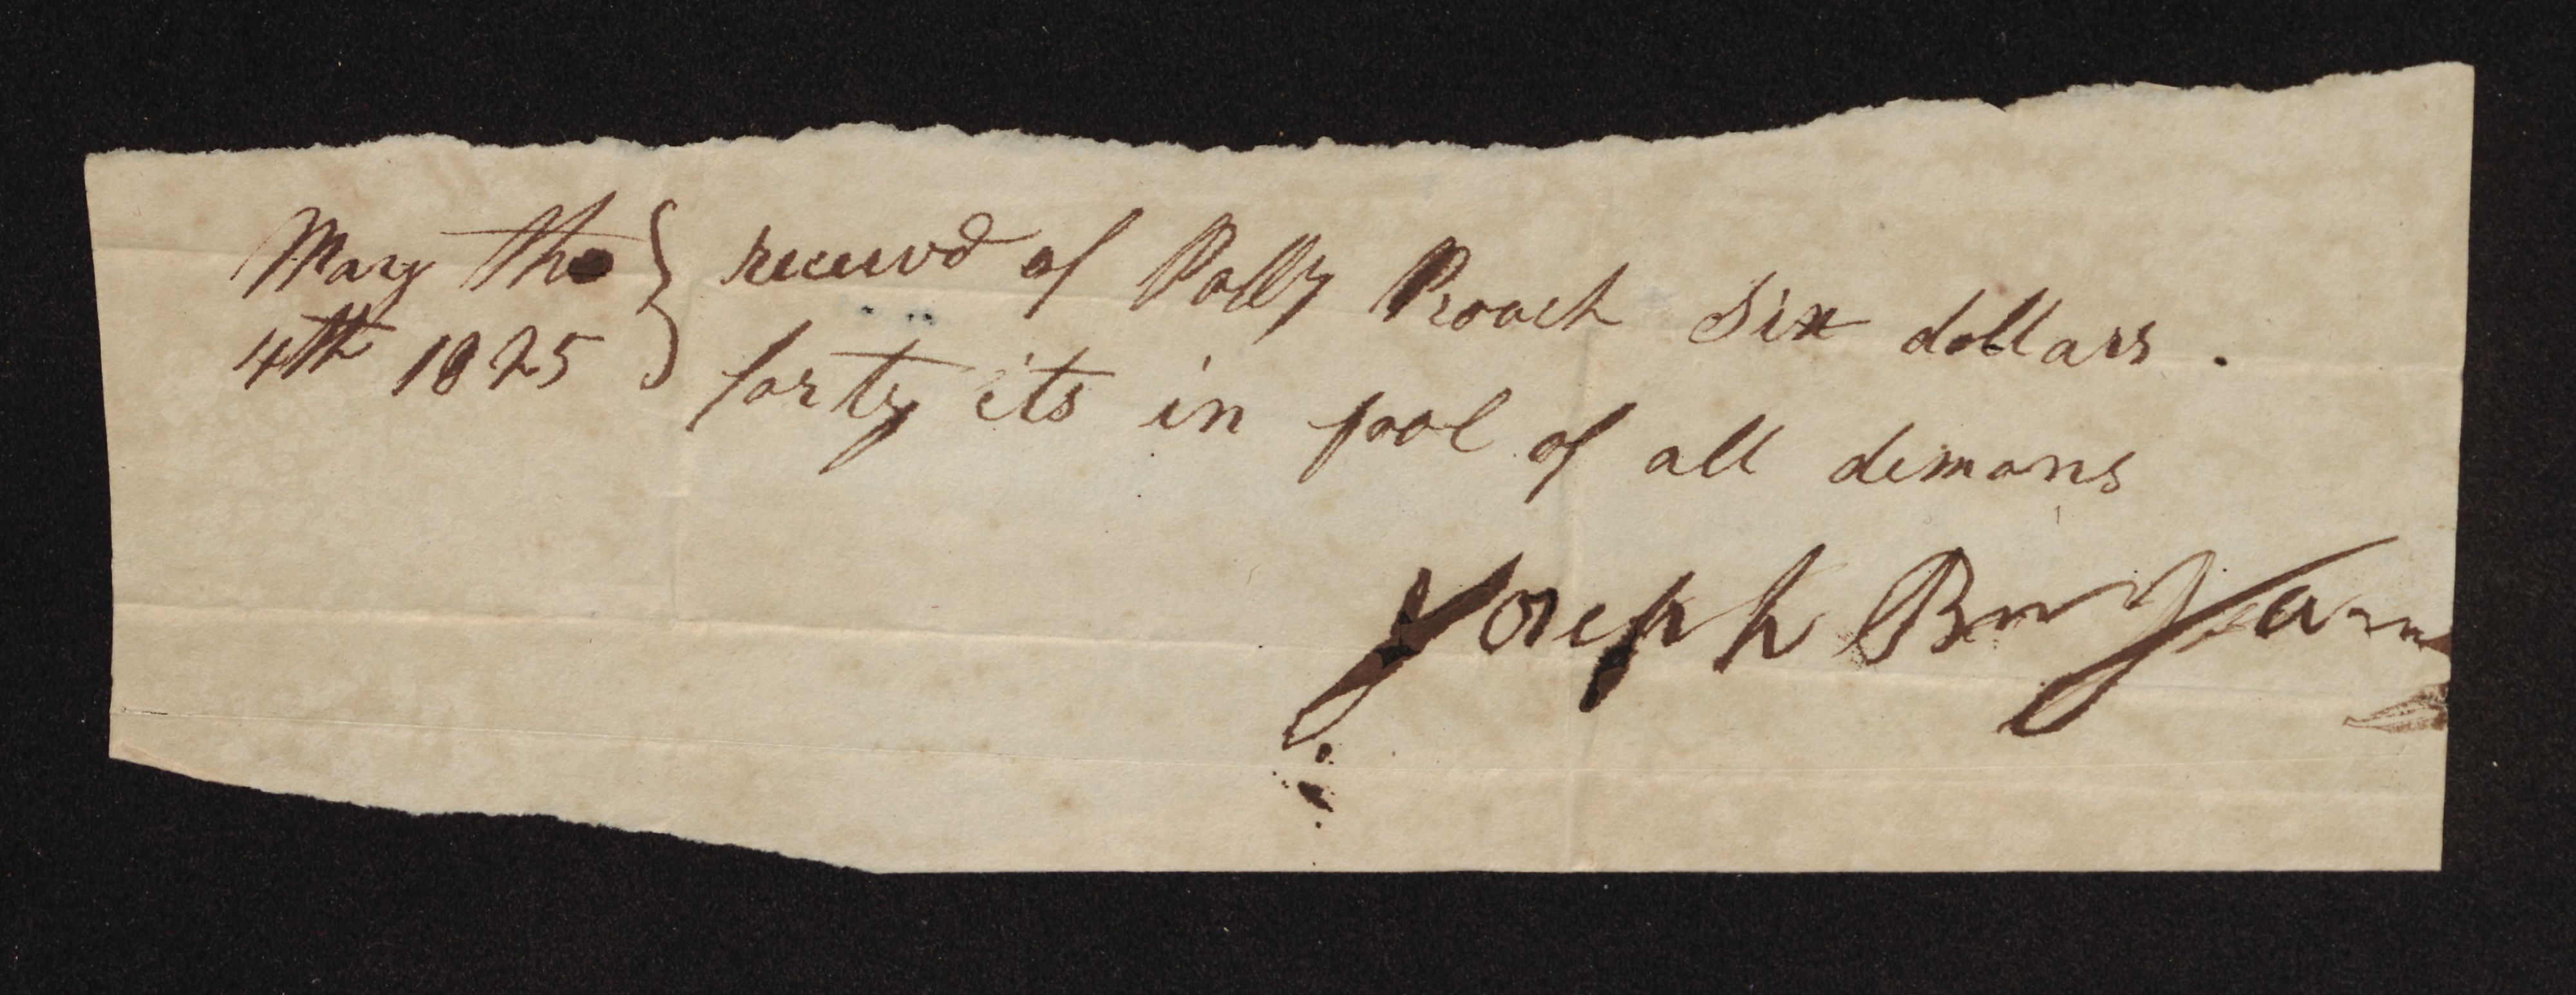 May the
4th 1825
receivd of Polly Roach Six dollars.
forty cts in fool of all demans
Joseph Bryan